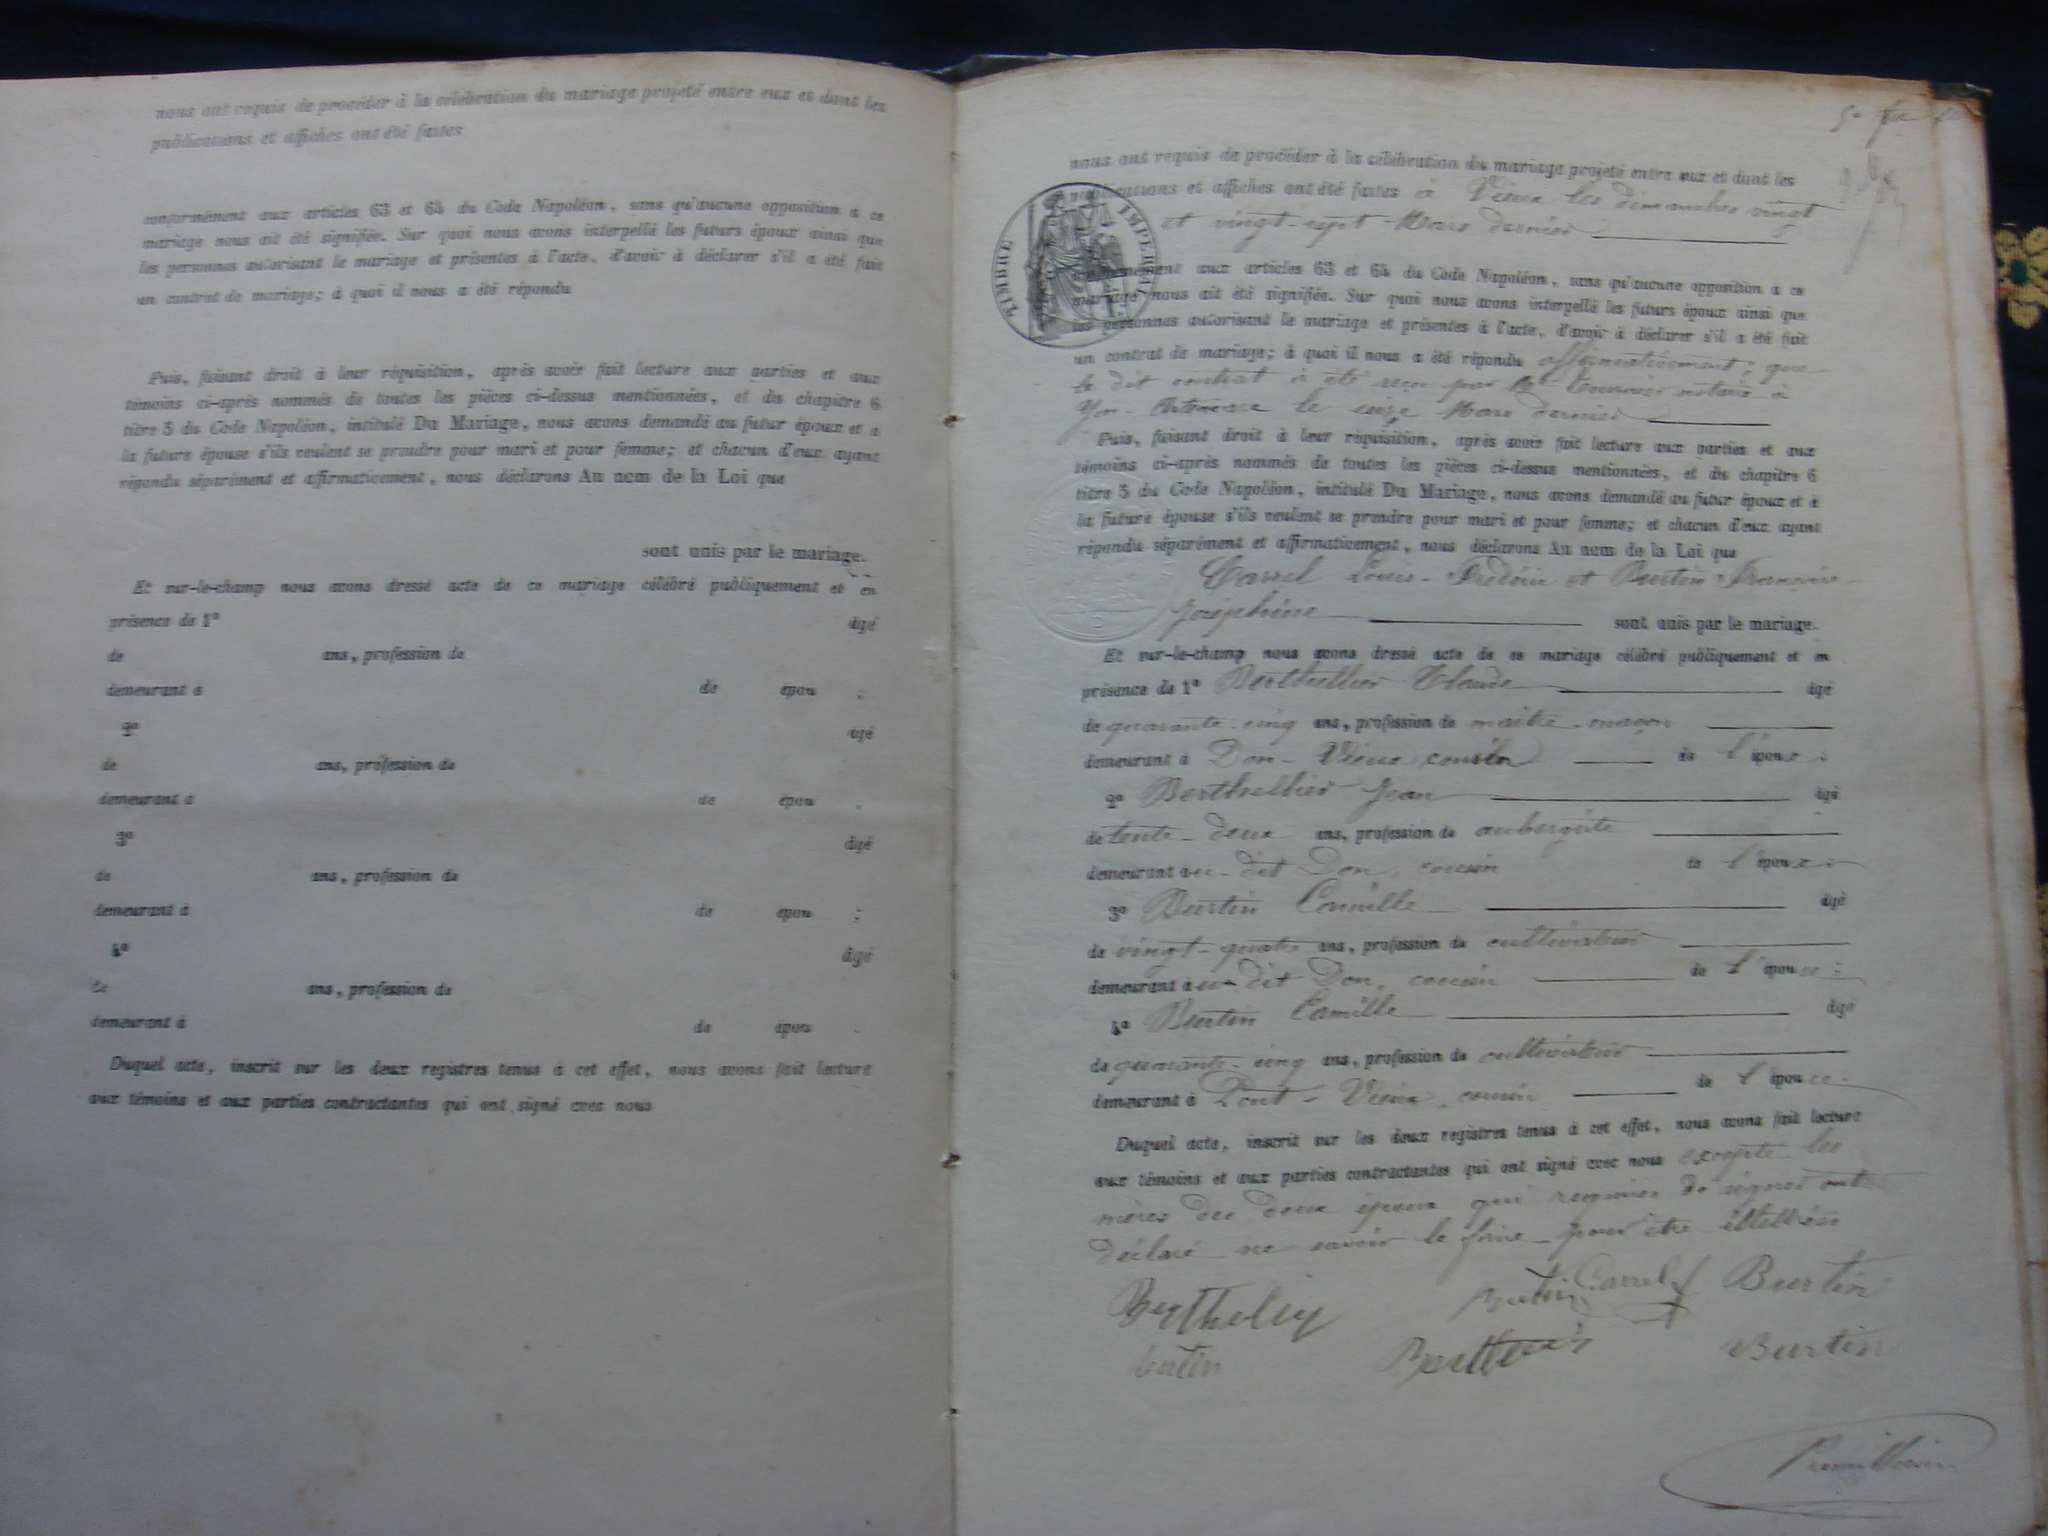 nous ont requis de procéder à la célébration du mariage projeté entre eux et dont les
publications et affiches ont été faites
conformément aux articles 63 et 64 du Code Napoléon, sans qu'aucune opposition a ce
mariage nous ait été signifiée. Sur quoi nous avons interpellé les futurs époux ainsi que
les personnes autorisant le mariage et présentes à l'acte, d'avoir à déclarer s'il a été fait
un contrat de mariage; à quoi il nous a été répondu
Puis, faisant droit à leur réquisition, après avoir fait lecture aux parties et aux
témoins ci-après nommés de toutes les pièces ci-dessus mentionnées, et du chapitre 6
titre 5 du Code Napoléon, intitulé Du Mariage, nous avons demandé au futur époux et a
la future épouse s'ils veulent se prendre pour mari et pour femme; et chacun d'eux ayant
répondu séparément et affirmativement, nous déclarons Au nom de la Loi que
sont unis par le mariage.
Et sur-le-champ nous avons dressé acte de ce mariage célébré publiquement et en
présence de 1º âgé
de ans, profession de
demeurant à de épou ;
2º âgé
de ans, profession de
demeurant a de épou ;
3º âgé
de ans, profession de
demeurant à de épou ;
4º âgé
de ans, profession de
demeurant à de épou .
Duquel acte, inscrit sur les deux registres tenus à cet effet, nous avons fait lecture
aux témoins et aux parties contractantes qui ont signé avec nous
nous ont requis de procéder à la célébration du mariage projeté entre eux et dont les
publications et affiches ont été faites à Vieux les dimanches vingt
et vingt-sept Mars dernier
TIMBRE IMPERIAL
conformément aux articles 63 et 64 du Code Napoléon, sans qu'aucune opposition a ce
mariage nous ait été signifiée. Sur quoi nous avons interpellé les futurs époux ainsi que
les personnes autorisant le mariage et présentes à l'acte, d'avoir à déclarer s'il a été fait
un contrat de mariage; à quoi il nous a été répondu affirmativement; que
le dit contrat à été reçu par notaire à
Yon-Artemare le seize Mars dernier
Puis, faisant droit à leur réquisition, après avoir fait lecture aux parties et aux
témoins ci-après nommés de toutes les pièces ci-dessus mentionnées, et du chapitre 6
titre 5 du Code Napoléon, intitulé Du Mariage, nous avons demandé au futur époux et à
la future épouse s'ils veulent se prendre pour mari et pour femme; et chacun d'eux ayant
répondu séparément et affirmativement, nous déclarons Au nom de la Loi que
Carrel Louis-Frédéric et Burtin Françoise
Joséphine sont unis par le mariage.
Et sur-le-champ nous avons dressé acte de ce mariage célébré publiquement et en
présence de 1º Berthellier Claude âgé
de quarante-cinq ans, profession de maître-maçon
demeurant à Don-Vieux cousin de l'époux;
2º Berthellier Jean âgé
de trente-deux ans, profession de aubergiste
demeurant au-dit Don, cousin de l'époux;
3º Burtin Camille âgé
de vingt-quatre ans, profession de cultivateur
demeurant au dit Don, cousin de l'épouse;
4º Burtin Camille âgé
de quarante-cinq ans, profession de cultivateur
demeurant à Pont-Vieux, cousin de l'épouse.
Duquel acte, inscrit sur les deux registres tenus à cet effet, nous avons fait lecture
aux témoins et aux parties contractantes qui ont signé avec nous excepté les
mères des deux époux qui requises de signer ont
déclaré ne savoir le faire pour être illettrées
Burtin Carrel Burtin
Burtin